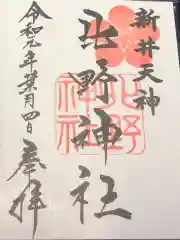 新井天神
北野神社
北野
神社
奉拝
令和元年葉月四日